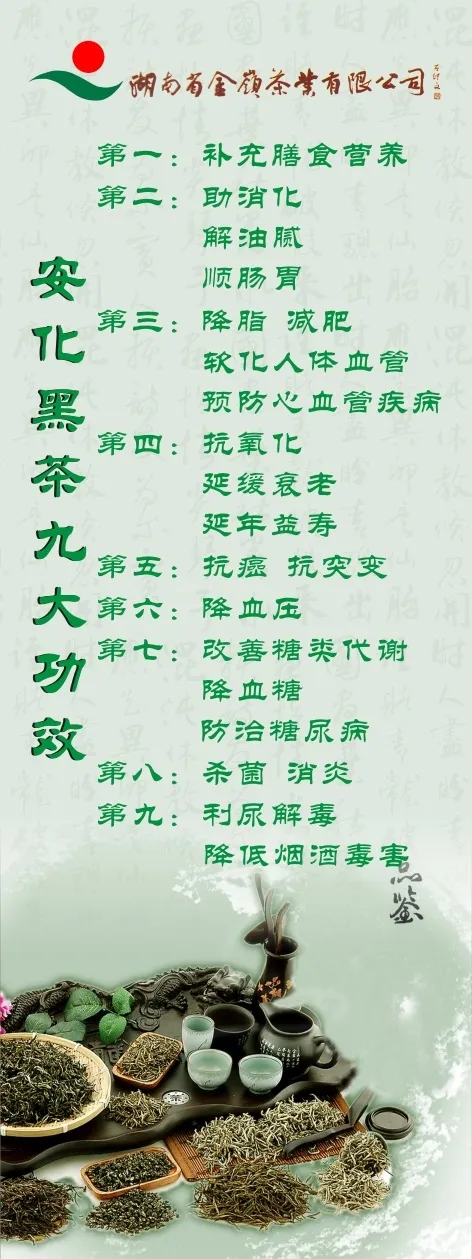 湖南省金嶺茶业有限公司
安化黑茶九大功效
第一：补充膳食营养
第二：助消化
解油腻
顺肠胃
第三：降脂 减肥
软化人体血管
预防心血管疾病
第四：抗氧化
延缓衰老
延年益寿
第五：抗癌 抗突变
第六：降血压
第七：改善糖类代谢
降血糖
防治糖尿病
第八：杀菌 消炎
第九：利尿解毒
降低烟酒毒害
品鉴
茶